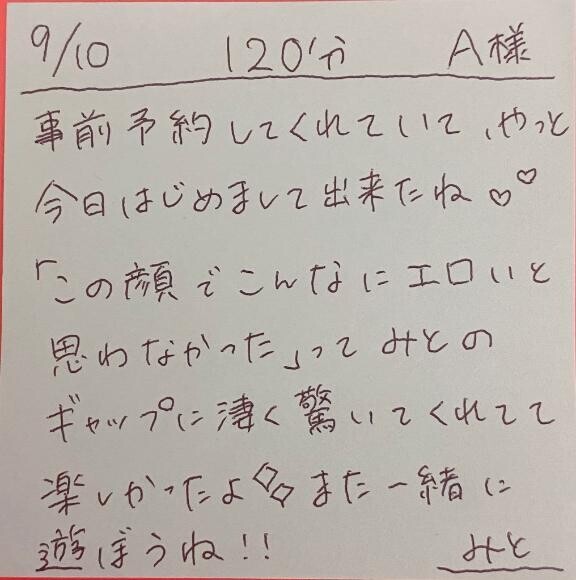 9/10 120分 A様
事前予約してくれていて、やっと
今日はじめまして出来たね♡♡
「この顔でこんなにエロいと
思わなかった」って みとの
ギャップに凄く驚いてくれてて
楽しかったよ◇◇また一緒に
遊ぼうね!! みと